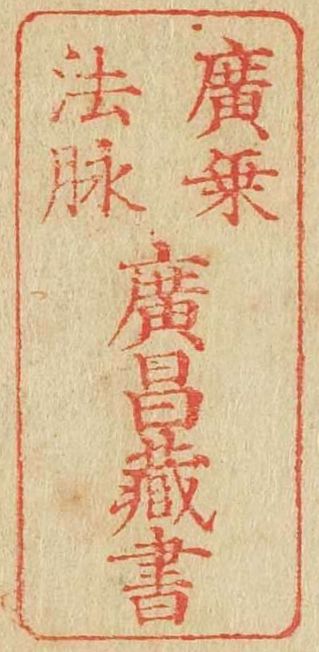 廣乗
法脉
廣昌藏書